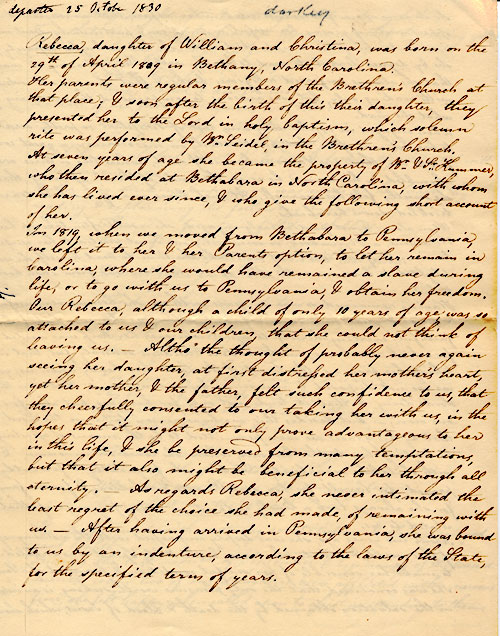 departed 25 Octobr 1830
darkey
Rebecca, daughter of William and Christina, was born on the
29th of April 1809 in Bethany, North Carolina.
Her parents were regular members of the Brethren's Church at
that place; & soon after the birth of this their daughter, they
presented her to the Lord in holy baptism, which solemn
rite was performed by Wm. Seidel, in the Brethren's Church.
At seven years of age she became the property of Wm. & Hammer,
who then resided at Bethabara in North Carolina, with whom
she has lived ever since, & who give the following short account
of her.
In 1819, when we moved from Bethabara to Pennsylvania,
we left it to her & her Parents option, to let her remain in
Carolina, where she would have remained a slave during
life, or to go with us to Pennsylvania, & obtain her freedom.
Our Rebecca, although a child of only 10 years of age was so
attached to us & our children, that she could not think of
leaving us. — Altho' the thought of probably never again
seeing her daughter, at first distressed her mother's heart,
yet her mother, & the father, felt such confidence to us, that
they cheerfully consented to our taking her with us, in the
hopes that it might not only prove advantageous to her
in this life, & she be preserved from many temptations,
but that it also might be beneficial to her through all
eternity. — As regards Rebecca, she never intimated the
least regret of the choice she had made, of remaining with
us. — After having arrived in Pennsylvania, she was bound
to us by an indenture, according to the laws of the State,
for the specified term of years.